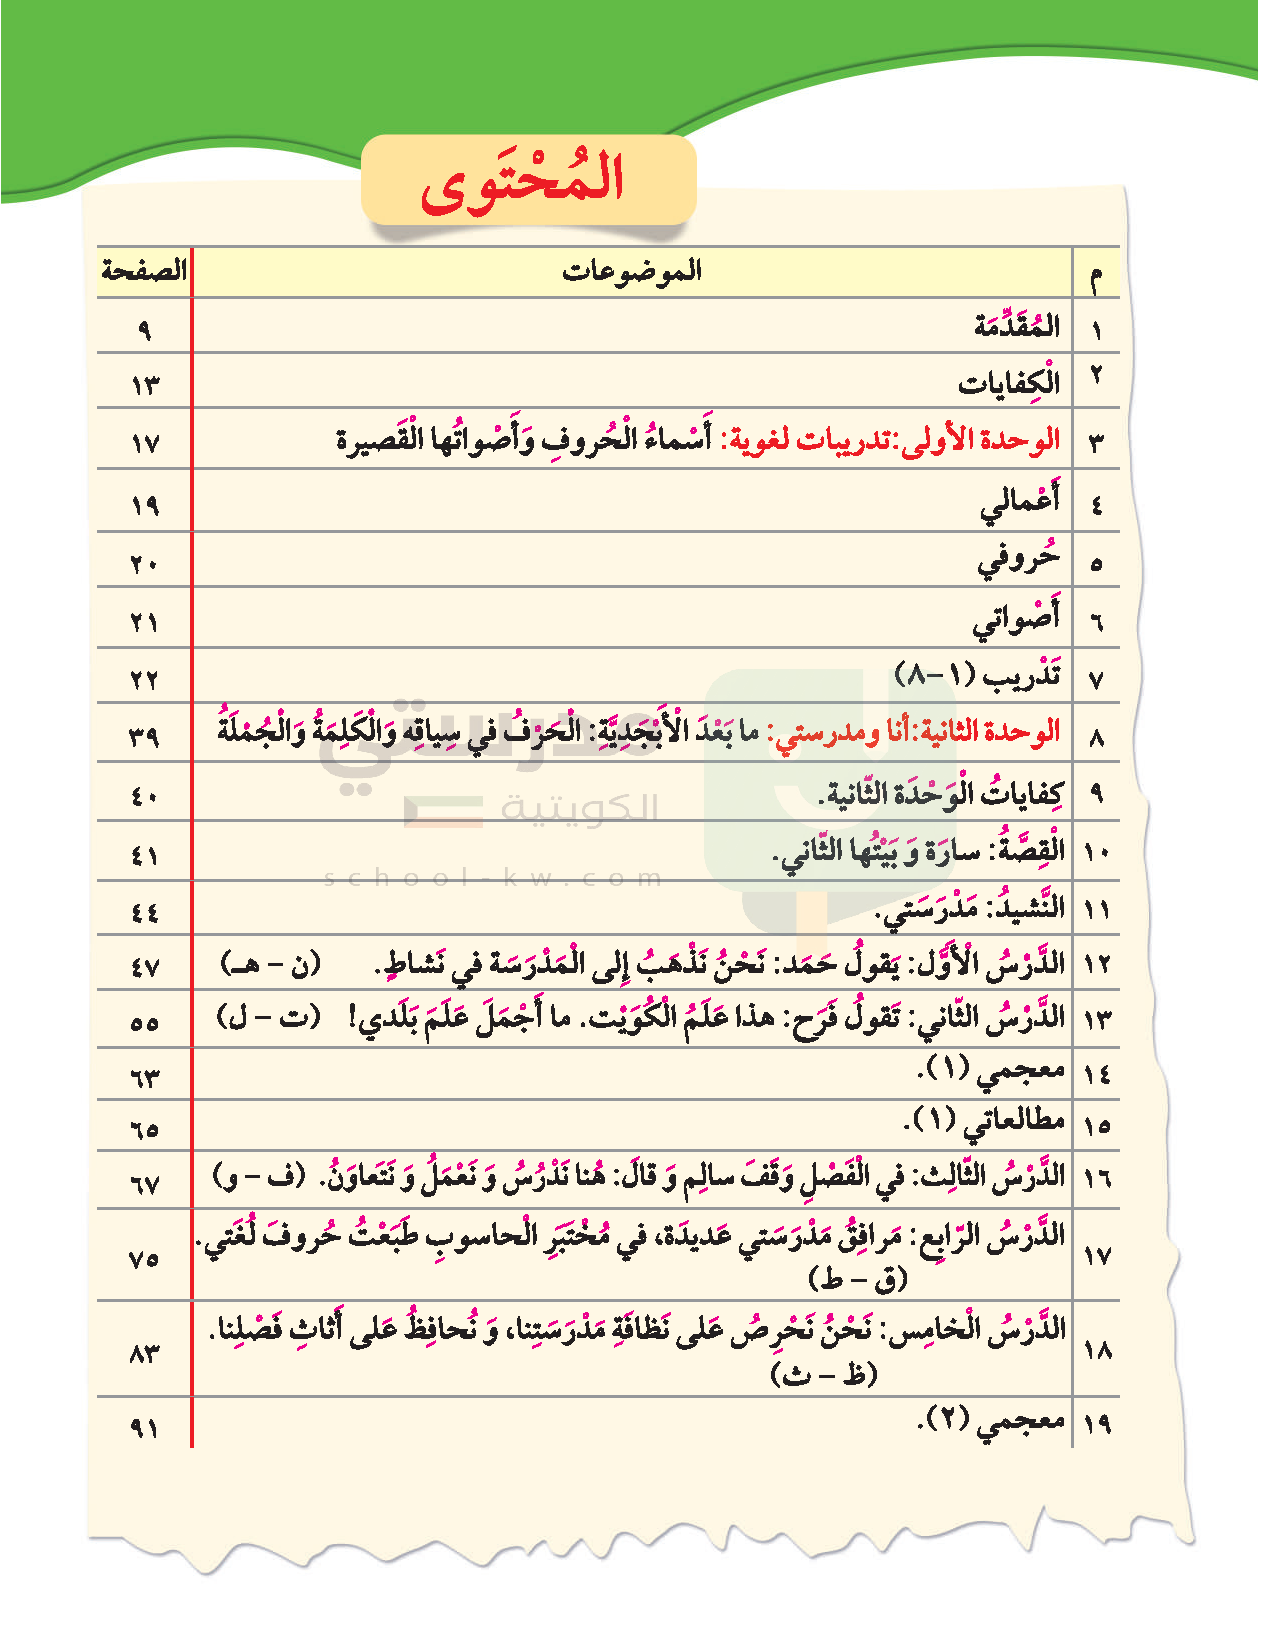 المُحْتَوى
م الموضوعات الصفحة
١ المُقَدِّمَة ٩
٢ الْكِفايات ١٣
٣ الوحدة الأولى:تدريبات لغوية: أَسْماءُ الْحُروفِ وَأَصْواتُها الْقَصيرة ١٧
٤ أَعْمالي ١٩
٥ حُروفي ٢٠
٦ أَصْواتي ٢١
٧ تَدْريب (١-٨) ٢٢
٨ الوحدة الثانية:أنا ومدرستي: ما بَعْدَ الْأَبْجَدِيَّةِ: الْحَرْفُ في سِياقِه وَالْكَلِمَةُ وَالْجُمْلَةُ ٣٩
٩ كِفاياتُ الْوَحْدَة الثّانية. ٤٠
١٠ الْقِصَّةُ: سارَة وَ بَيْتُها الثّاني. ٤١
١١ النَّشيدُ: مَدْرَسَتي. ٤٤
١٢ الدَّرْسُ الْأَوَّل: يَقولُ حَمَد: نَحْنُ نَذْهَبُ إِلى الْمَدْرَسَة في نَشاطٍ. (ن – هـ) ٤٧
١٣ الدَّرْسُ الثّاني: تَقولُ فَرَح: هذا عَلَمُ الْكُوَيْت. ما أَجْمَلَ عَلَمَ بَلَدي! (ت – ل) ٥٥
١٤ معجمي (١). ٦٣
١٥ مطالعاتي (١). ٦٥
١٦ الدَّرْسُ الثّالِث: في الْفَصْلِ وَقَفَ سالِم وَ قالَ: هُنا نَدْرُسُ وَ نَعْمَلُ وَ نَتَعاوَنُ. (ف – و) ٦٧
١٧ الدَّرْسُ الرّابِع: مَرافِقُ مَدْرَسَتي عَديدَة، في مُخْتَبَرِ الْحاسوبِ طَبَعْتُ حُروفَ لُغَتي. ٧٥
(ق – ط)
١٨ الدَّرْسُ الْخامِس: نَحْنُ نَحْرِصُ عَلى نَظافَةِ مَدْرَسَتِنا، وَ نُحافِظُ عَلى أَثاثِ فَصْلِنا. ٨٣
(ظ – ث)
١٩ معجمي (٢). ٩١
مدرستي
الكويتية
school-kw.com